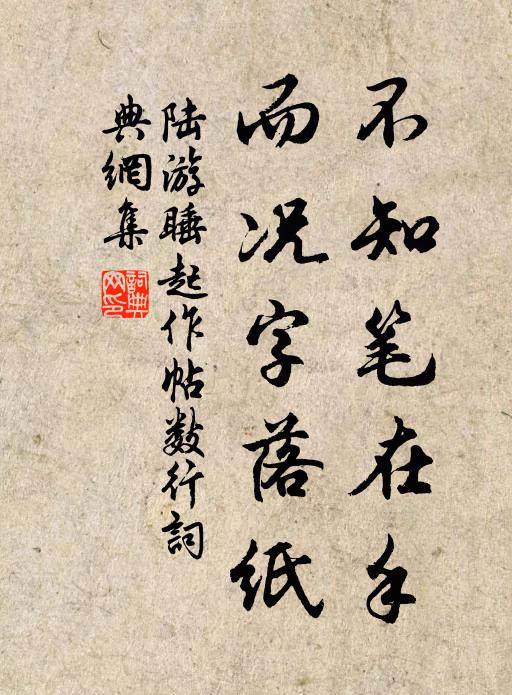 不知笔在手
而况字落纸
陆游睡起作帖数行詞
典網集
詞典
网印